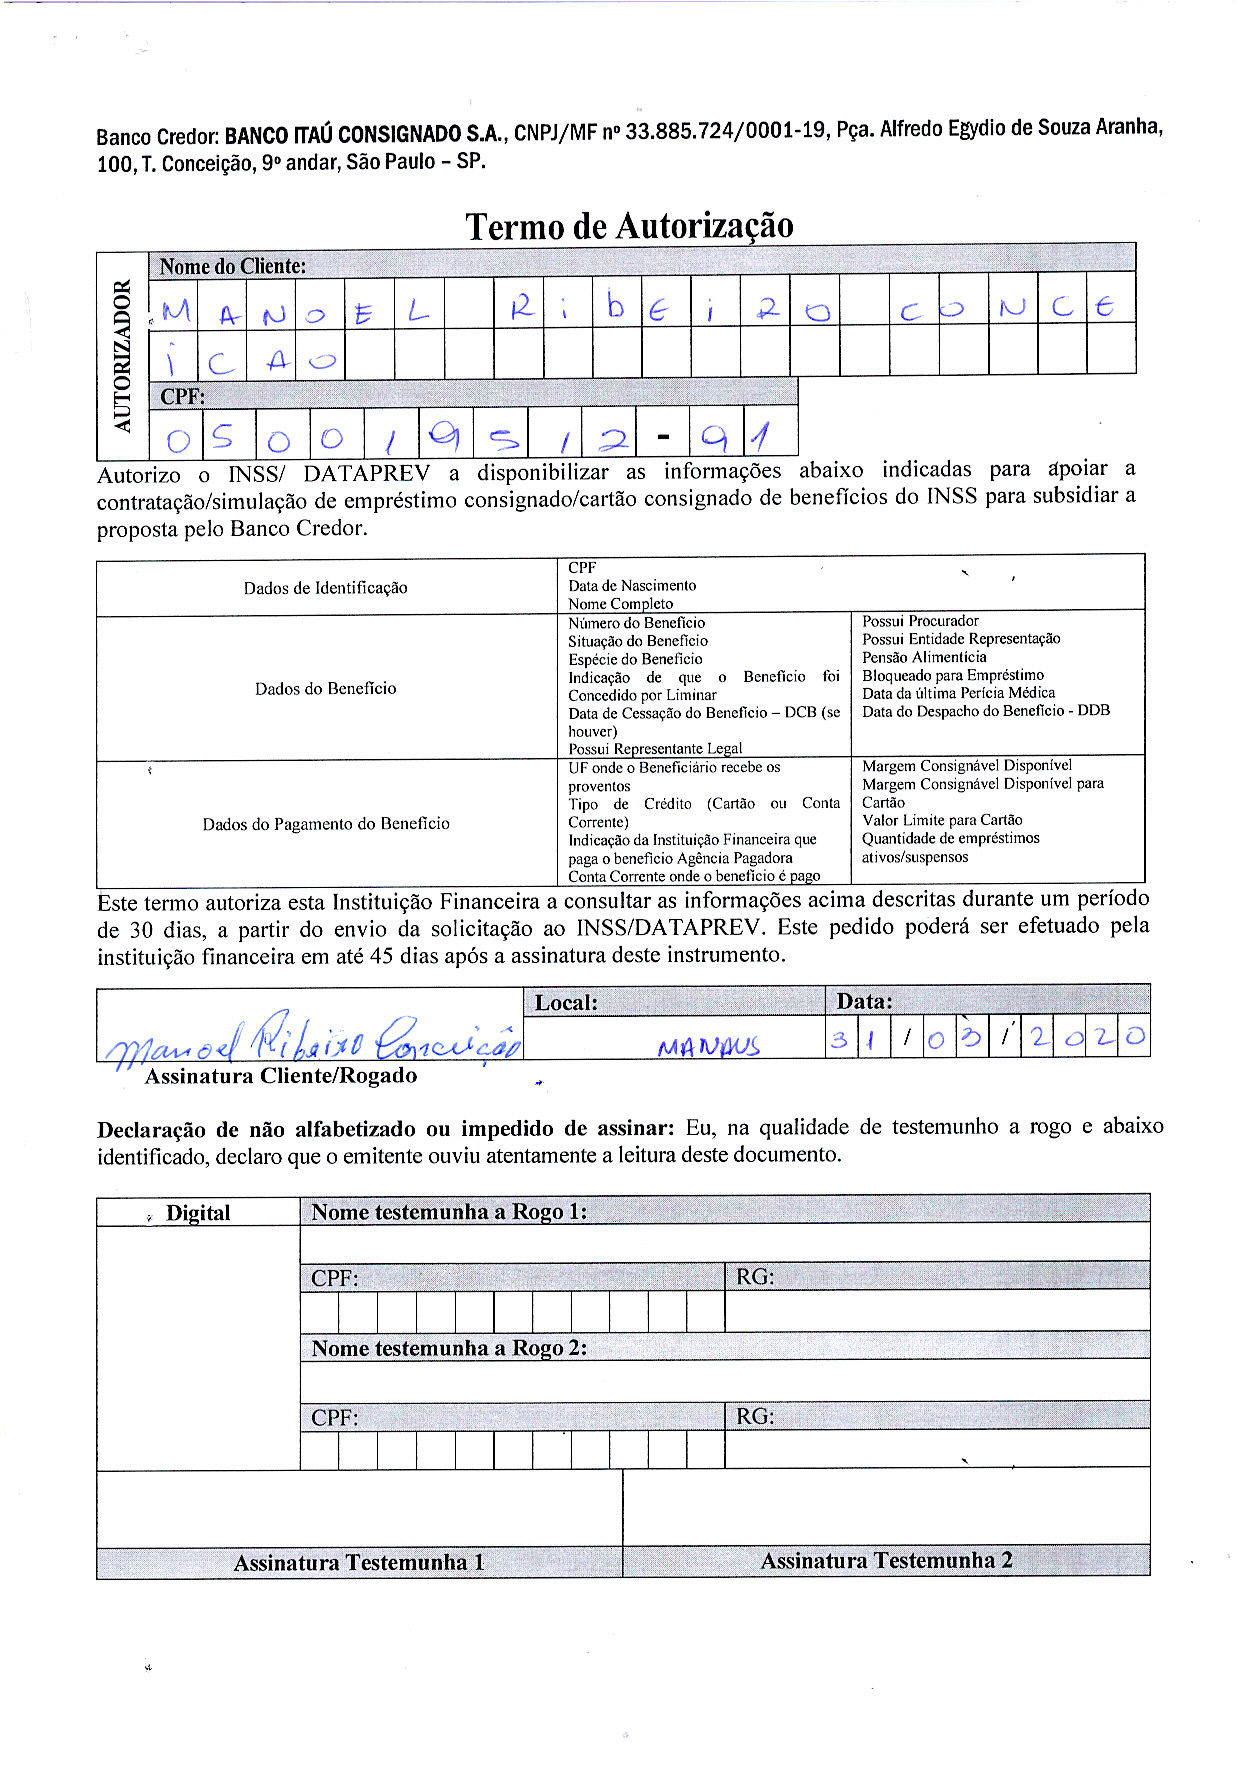 Banco Credor: BANCO ITAÚ CONSIGNADO S.A., CNPJ/MF nº 33.885.724/0001-19, Pça. Alfredo Egydio de Souza Aranha,
100, T. Conceição, 9º andar, São Paulo – SP.
Termo de Autorização
AUTORIZADOR
Nome do Cliente:
MANOEL RibEiRO CONCE
iCAO
CPF:
050019512-91
Autorizo o INSS/ DATAPREV a disponibilizar as informações abaixo indicadas para apoiar a
contratação/simulação de empréstimo consignado/cartão consignado de benefícios do INSS para subsidiar a
proposta pelo Banco Credor.
Dados de Identificação
CPF
Data de Nascimento
Nome Completo
Dados do Benefício
Número do Benefício
Situação do Benefício
Espécie do Benefício
Indicação de que o Benefício foi
Concedido por Liminar
Data de Cessação do Benefício – DCB (se
houver)
Possui Representante Legal
Possui Procurador
Possui Entidade Representação
Pensão Alimentícia
Bloqueado para Empréstimo
Data da última Perícia Médica
Data do Despacho do Benefício - DDB
Dados do Pagamento do Benefício
UF onde o Beneficiário recebe os
proventos
Tipo de Crédito (Cartão ou Conta
Corrente)
Indicação da Instituição Financeira que
paga o benefício Agência Pagadora
Conta Corrente onde o benefício é pago
Margem Consignável Disponível
Margem Consignável Disponível para
Cartão
Valor Limite para Cartão
Quantidade de empréstimos
ativos/suspensos
Este termo autoriza esta Instituição Financeira a consultar as informações acima descritas durante um período
de 30 dias, a partir do envio da solicitação ao INSS/DATAPREV. Este pedido poderá ser efetuado pela
instituição financeira em até 45 dias após a assinatura deste instrumento.
Local: Data:
Manoel Ribeiro Conceição MANAUS 31/03/2020
Assinatura Cliente/Rogado
Declaração de não alfabetizado ou impedido de assinar: Eu, na qualidade de testemunho a rogo e abaixo
identificado, declaro que o emitente ouviu atentamente a leitura deste documento.
Digital
Nome testemunha a Rogo 1:
CPF: RG:
Nome testemunha a Rogo 2:
CPF: RG:
Assinatura Testemunha 1 Assinatura Testemunha 2